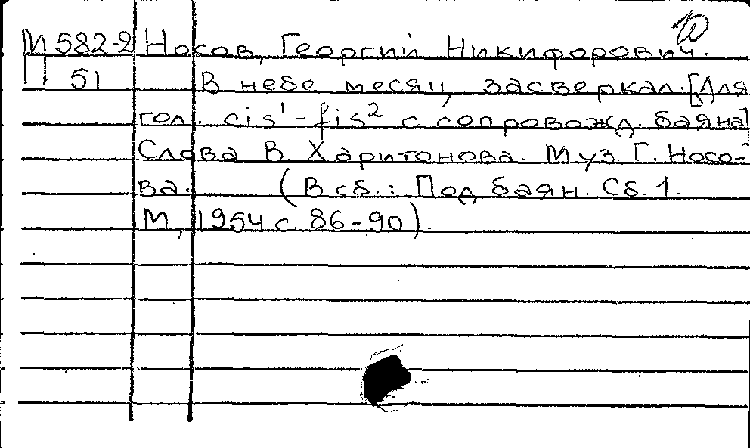 М 582-2 Носов, Георгий Никифорович.
П 51 В небе месяц засверкал. [Для
гол. cis¹-fis² с сопровожд. баяна]
Слова В. Харитонова. Муз. Г. Носо-
ва. (В сб.: Под баян. Сб. 1.
М., 1954 с. 86-90).